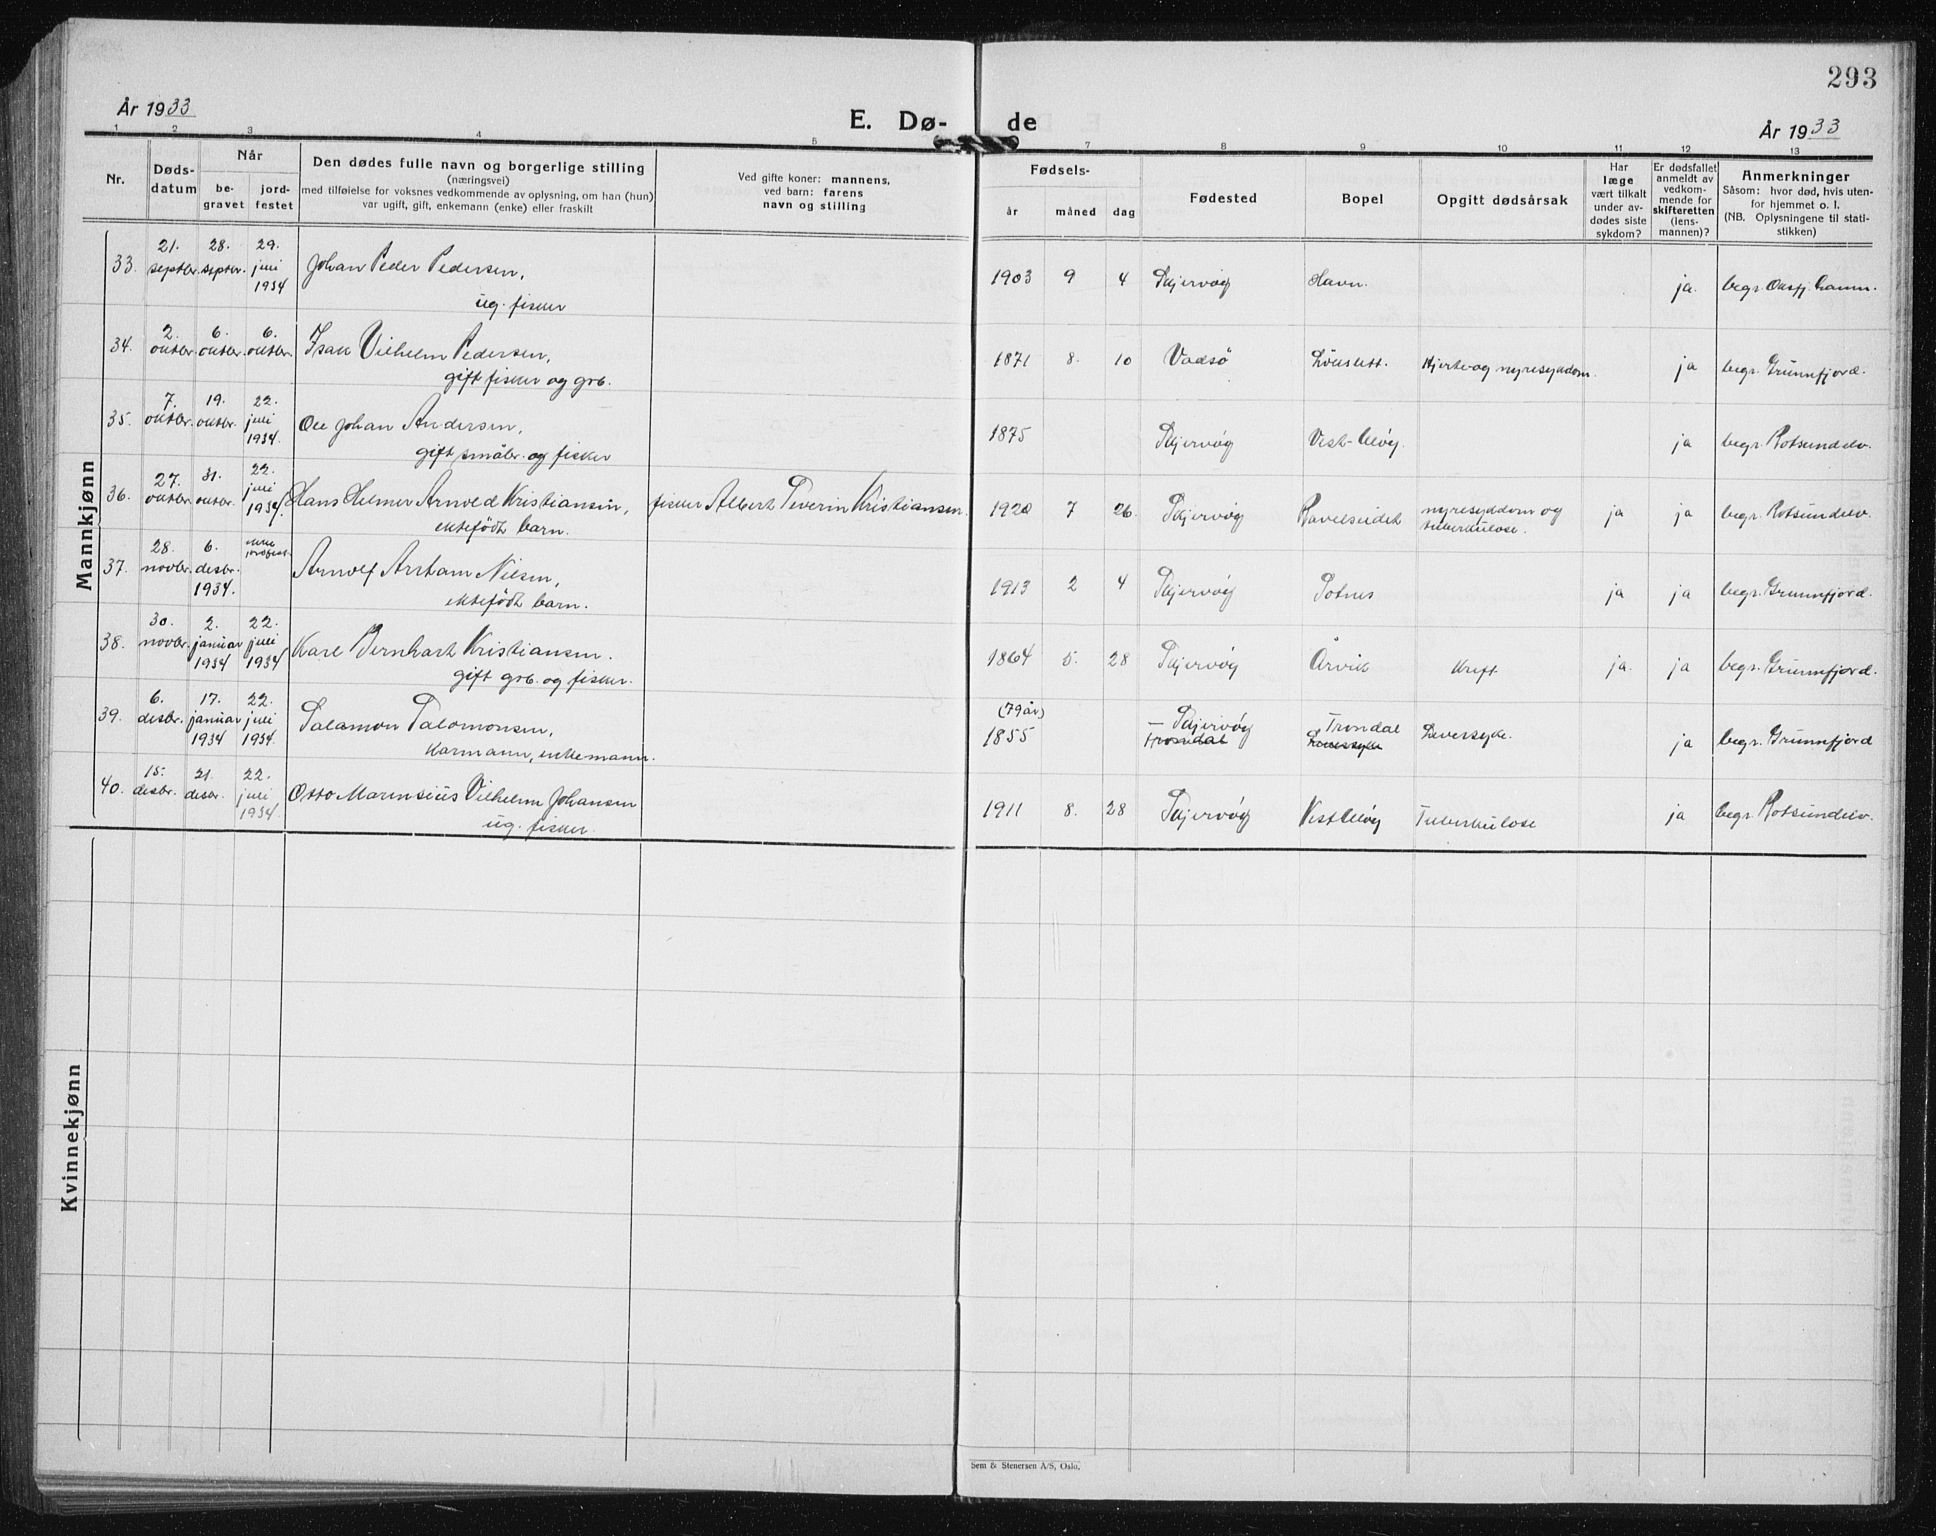 293
År 1933
E. Dø-
de
År 1933
1 2 3 4 5 7 8 9 10 11 12 13
Nr.
Døds-
datum
Når
be-
gravet
jord-
festet
Den dødes fulle navn og borgerlige stilling
(næringsvei)
med tilføielse for voksnes vedkommende av oplysning, om han (hun)
var ugift, gift, enkemann (enke) eller fraskilt
Ved gifte koner: mannens,
ved barn: farens
navn og stilling
Fødsels-
år måned dag
Fødested
Bopel
Opgitt dødsårsak
Har
læge
vært tilkalt
under av-
dødes siste
sykdom?
Er dødsfallet
anmeldt av
vedkom-
mende for
skifteretten
(lens-
mannen)?
Anmerkninger
Såsom: hvor død, hvis uten-
for hjemmet o. l.
(NB. Oplysningene til stati-
stikken)
Mannkjønn
33. 21. septbr. 28. septbr. 29. juli 1934 Johan Peder Pedersen, 1903 9 4 Skjervøy Havn. ja. begr. Oksfj. hamn.
ug. fisker
34. 2. oktbr. 6. oktbr. 6. oktbr. Isak Vilhelm Pedersen, 1871 8. 10 Vadsö Lökslett Hjerte og nyresykdom. ja begr. Grunnfjord.
gift fisker og grb.
35. 7. oktbr. 19. oktbr. 22. juli 1934. Ole Johan Andersen, 1875 Skjervøy Vest-Uløy. ja begr. Rotsundelv.
gift småbr. og fisker
36. 27. oktbr. 31. oktbr. 22. juli 1934. Hans Helmer Arnold Kristiansen, fisker Albert Severin Kristiansen. 1920 7 26. Skjervøy Ravelseidet nyresykdom og tuberkulose. ja ja begr. Rotsundelv.
ektefödt barn.
37. 28. novbr. 6. desbr. 1934. ikke jordfest. Arnolf Nilsen, 1913 2 4 Skjervøy Sotnes ja ja begr. Grunnfjord.
ektefödt barn.
38. 30. novbr. 2. januar 1934 22. juli 1934 Karl Bernhart Kristiansen. 1864 5. 28 Skjervøy Årvik Kreft ja. ja begr. Grunnfjord.
gift grb. og fisker.
39. 6. desbr. 17. januar 1934 22. juli 1934. Salamon Salomonsen, (79 år) 1855 Skjervøy Trondal Trondal Leversyke Leversyke. ja begr. Grunnfjord
Karmann, enkemann.
40. 15. desbr. 21. desbr. 22. juli 1934. Otto Marensius Vilhelm Johansen 1911 8. 28 Skjervøy Vest Uløy Tuberkulose ja begr. Rotsundelv.
ug. fisker.
Kvinnekjønn
Sem & Stenersen A/S, Oslo.